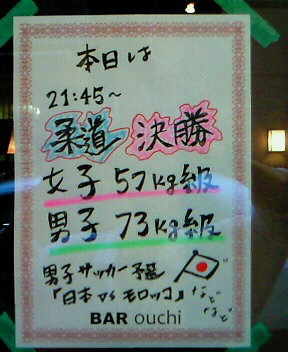 本日は
21:45～
柔道 決勝
女子 57kg級
男子 73kg級
男子サッカー予選
「日本 vs モロッコ」
などなど
BAR ouchi